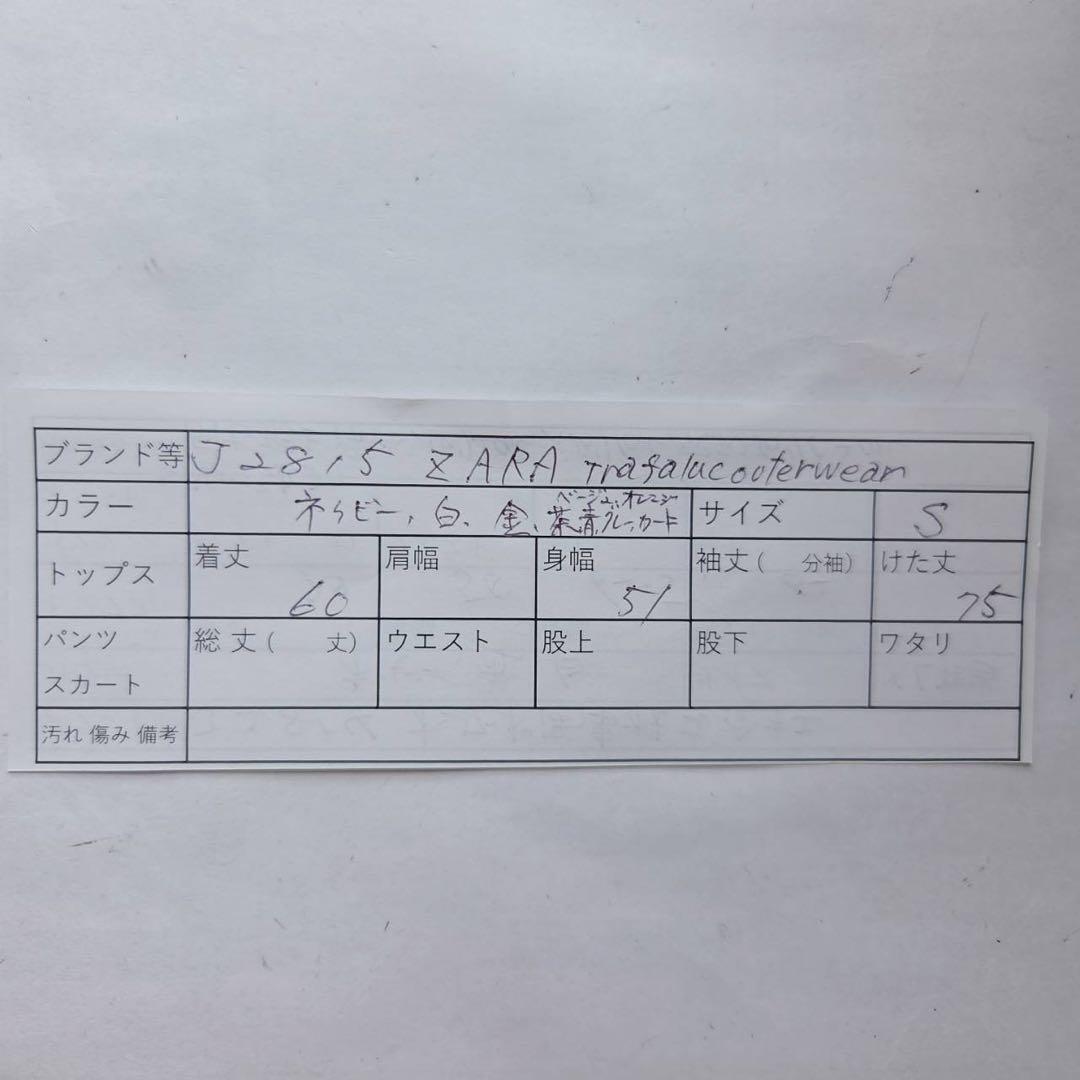 ブランド等 J2815 ZARA Trafaluc outerwear
カラー ネイビー、白、金、ベージュ、オレンジ 茶、青、グレー、カーキ サイズ S
トップス 着丈 60 肩幅 身幅 51 袖丈( 分袖) けた丈 75
パンツ スカート 総丈( 丈) ウエスト 股上 股下 ワタリ
汚れ 傷み 備考